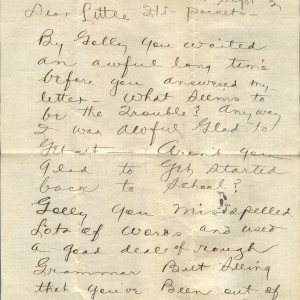 Sept 2
Dear Little Hi-Pockets—
By Golly you waited
an awful long time
before you answered my
letter— What seems to
be the Trouble? Any way
I was awful Glad to
Get it Aren't you
Glad to Get Started
back to School?
Golly you misspelled
Lots of words and used
a good deal of rough
Grammar But Seeing
that you've Been out of